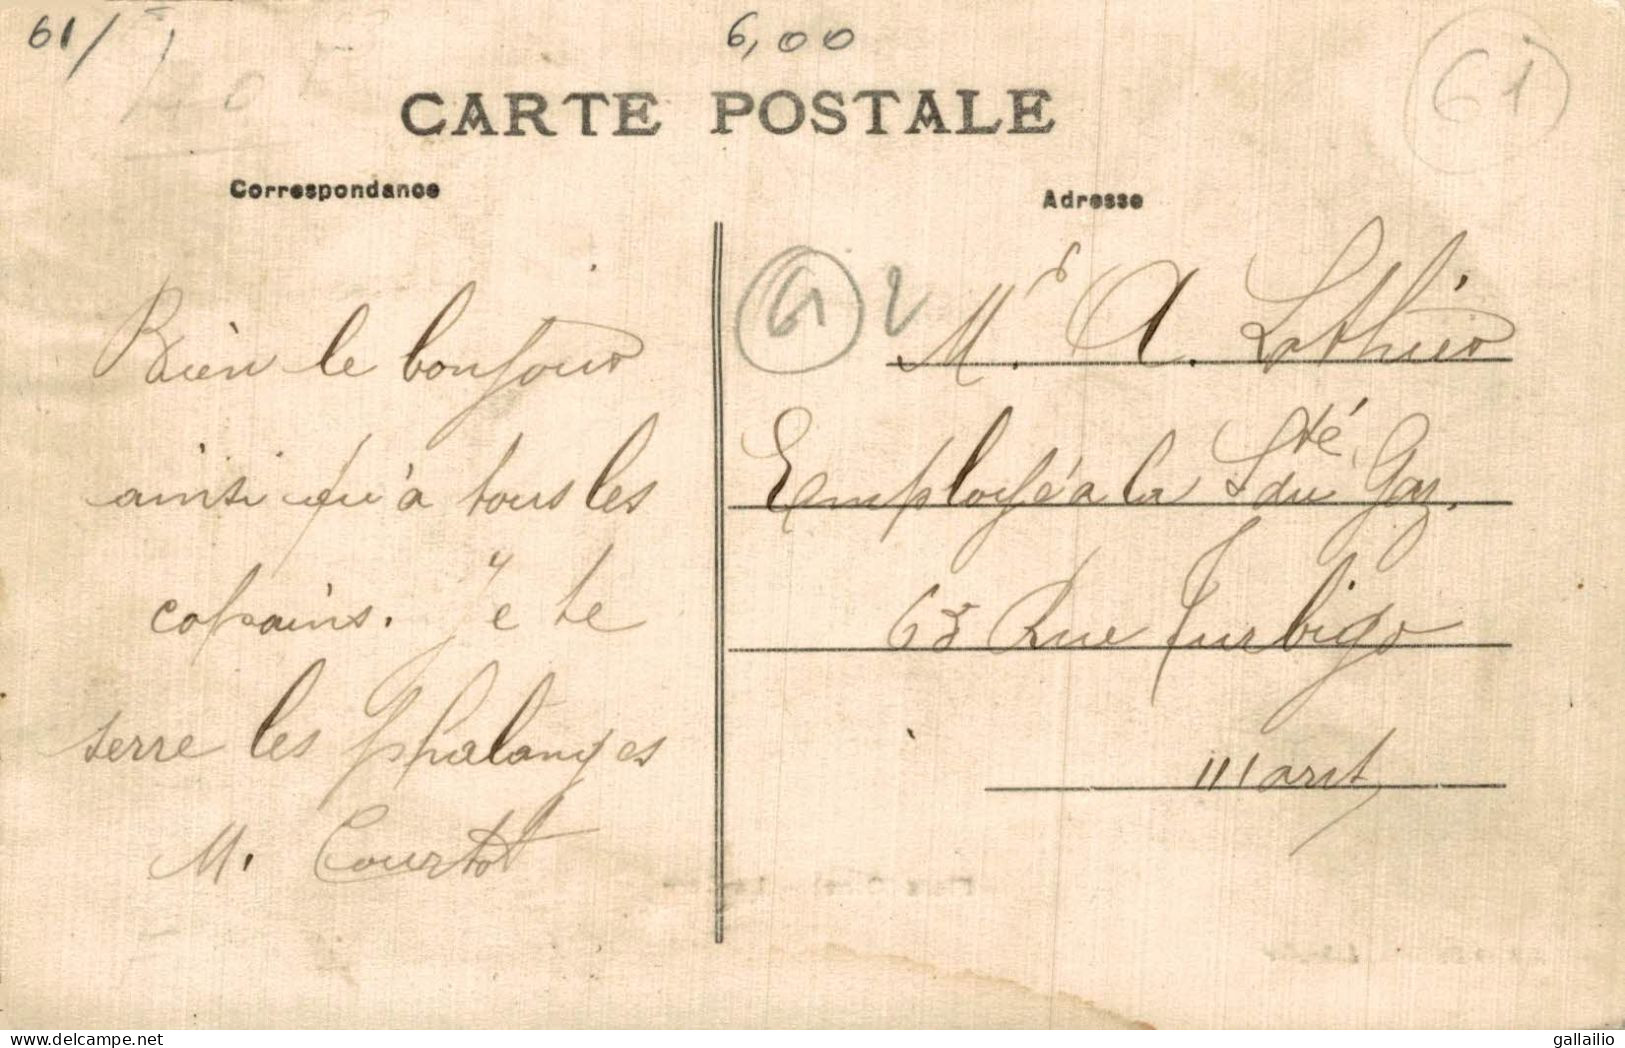 61/
6,00
61
CARTE POSTALE
Correspondance
Adresse
Bien le bonjour
ainsi qu'à tous les
copains. Je te
serre les phalanges
M. Courtot
61 2
Mr. A. Lothier
Employé à la Sté du Gaz.
63 Rue Turbigo
delcampe.net
gallailio